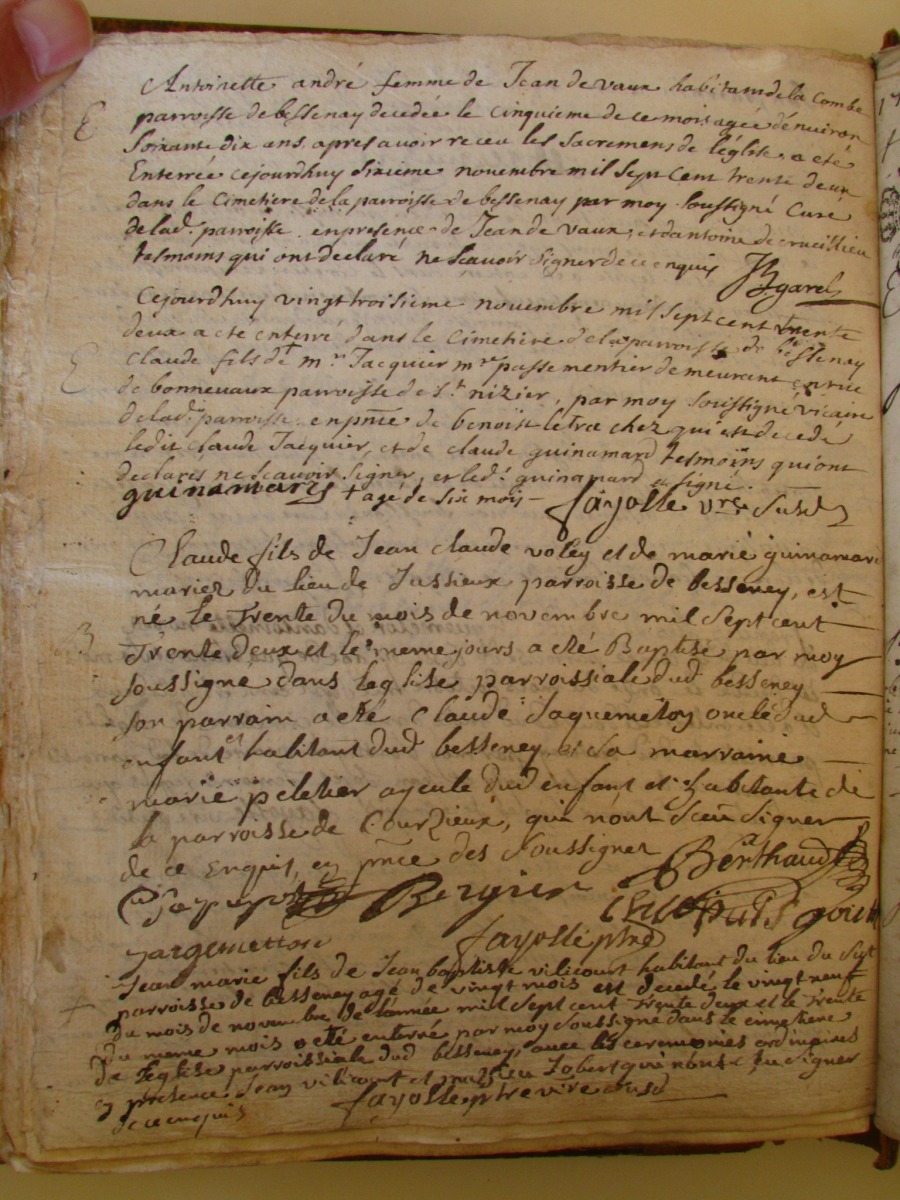 Antoinette andré femme de Jean de vaux habitant de la Combe
E parroisse de bessenay decedée le cinquieme de ce mois agée d'enuiron
soixante dix ans, apres auoir receu les sacremens de l'église, a eté
Enterrée cejourdhuy sixieme novembre mil sept cent trente deux
dans le Cimetiere de la parroisse de bessenay par moy soussigné Curé
de lad. parroisse en presence de Jean de vaux, et d'antoine de crucillieu
tesmoins qui ont declaré ne scauoir signer de ce enquis
Cejourdhuy vingt troisieme novembre mil sept cent trente
deux a eté enterré dans le Cimetiere de la parroisse de bessenay
E Claude fils de + mr Jacquier mre passementier demeurant en rue
de bonneuaux parroisse de st nizier, par moy soussigné vicaire
de lad. parroisse, en pnce de benoist letra chez qui est decedé
ledit claude Jacquier, et de claude guinamard tesmoins qui ont
declarés ne scauoir signer, et led. guinamard a signé.
guinamard + agé de six mois – fayolle vre susd
Claude fils de Jean claude voley et de marie guinamard
mariez du lieu de Jussieux parroisse de besseney, est
né le trente du mois de novembre mil sept cent
B trente deux et le meme jours a eté Baptisé par moy
soussigne dans leglise parroissiale dud besseney
son parrain a eté Claude Jaquemetoy oncle dud
enfant habitant dud besseney et sa marraine
marie peletier ayeule dud enfant et habitante de
la parroisse de Courzieux, qui nont sceu signer
de ce Enquis, en pnce des soussignes Berthaud
Bergier
fayolle ptre
Jean marie fils de Jean baptiste vilicourt habitant du lieu du
+ parroisse de besseney agé de vingt mois est decedé le vingt neuf
du mois de novembre de l'année mil sept cent trente deux et le trente
du meme mois a eté enterré par moy soussigné dans le cimetiere
de l'eglise parroissiale dud besseney, auec les ceremonies ordinaires
en presence Jean vilicourt et qui nont sceu signer
de ce enquis fayolle ptre vire susd